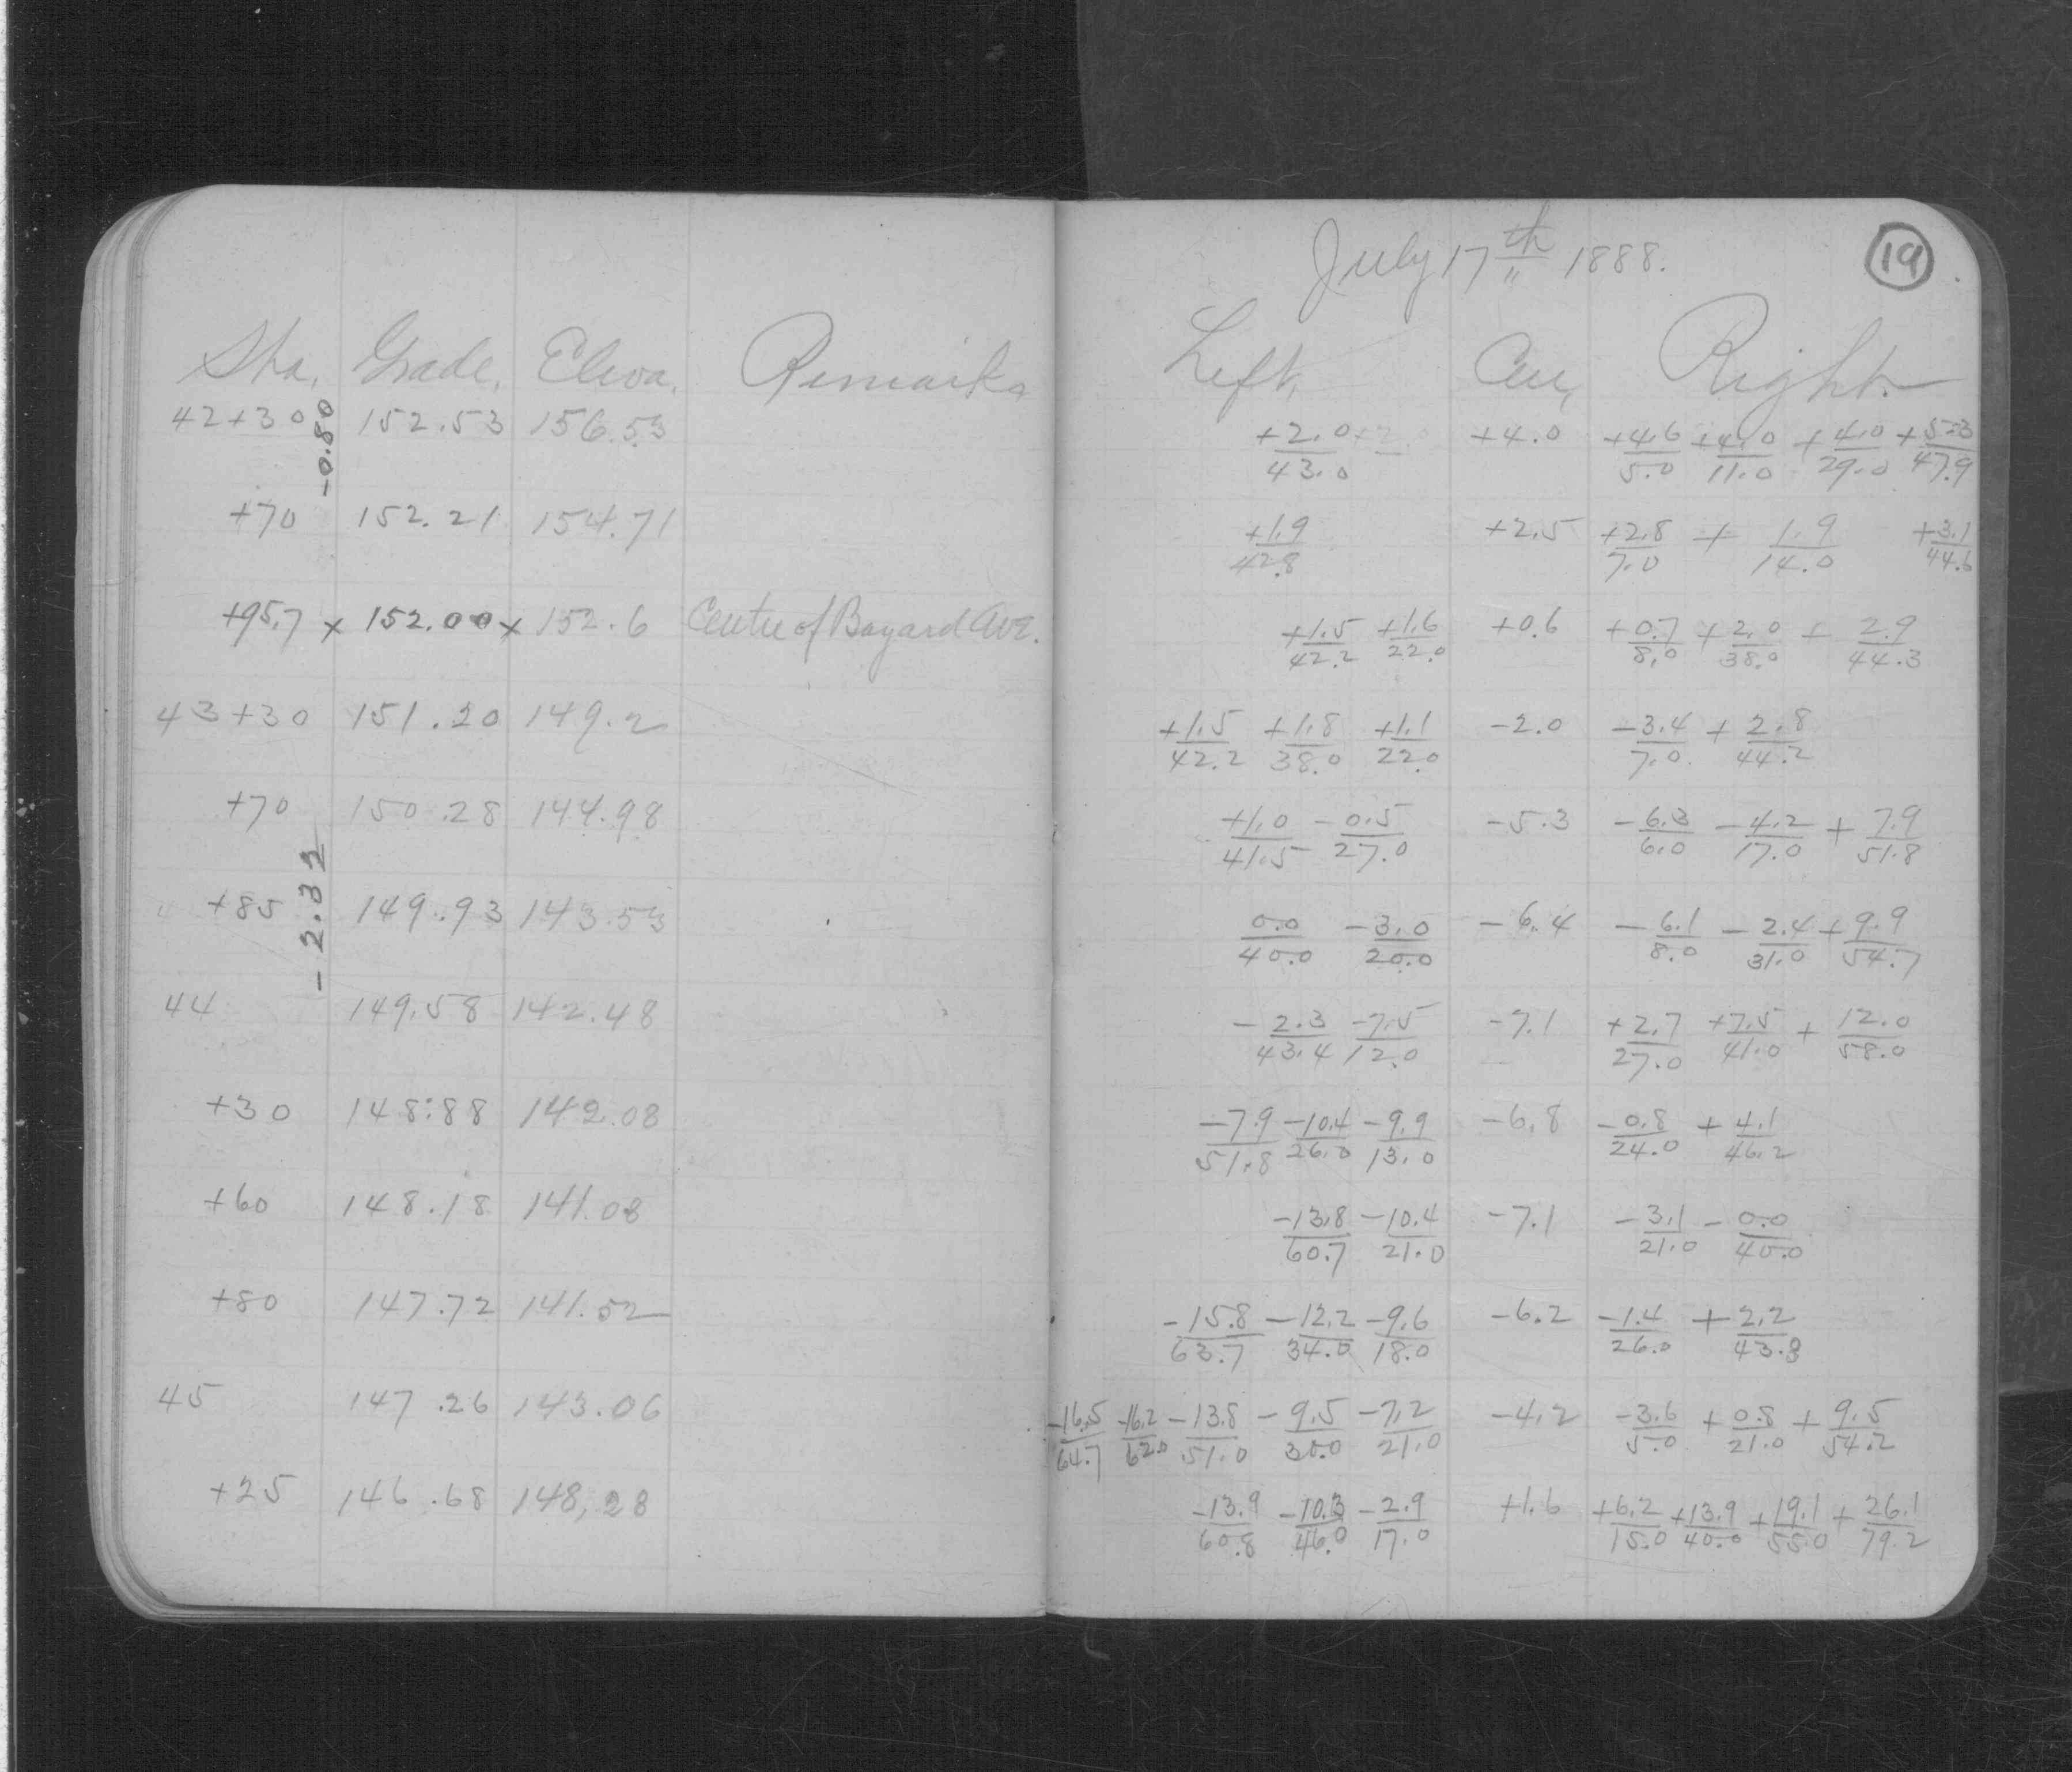 Sta. Grade. Eleva. Remarks
42+30 152.53 156.53
-0.80
+70 152.21 154.71
+95.7 x 152.00 x 152.6 Centre of Bayard Ave.
43+30 151.20 149.2
+70 150.28 144.98
-2.32
+85 149.93 143.53
44 149.58 142.48
+30 148.88 142.08
+60 148.18 141.08
+80 147.72 141.52
45 147.26 143.06
+25 146.68 148.28
July 17th 1888.
19
Left. Cen. Right.
+2.0 +4.0 +4.6 +4.0 +4.0 +5.3
43.0 5.0 11.0 29.0 47.9
+1.9 +2.5 +2.8 + 1.9 +3.1
42.8 7.0 14.0 44.6
+1.5 +1.6 +0.6 +0.7 +2.0 + 2.9
42.2 22.0 8.0 38.0 44.3
+1.5 +1.8 +1.1 -2.0 -3.4 + 2.8
42.2 38.0 22.0 7.0 44.2
+1.0 -0.5 -5.3 -6.3 -4.2 + 7.9
41.5 27.0 6.0 17.0 51.8
0.0 -3.0 -6.4 -6.1 -2.4 +9.9
40.0 20.0 8.0 31.0 54.7
-2.3 -7.5 -7.1 +2.7 +7.5 + 12.0
43.4 12.0 27.0 41.0 58.0
-7.9 -10.4 -9.9 -6.8 -0.8 + 4.1
51.8 26.0 13.0 24.0 46.2
-13.8 -10.4 -7.1 -3.1 -0.0
60.7 21.0 21.0 40.0
-15.8 -12.2 -9.6 -6.2 -1.4 +2.2
63.7 34.0 18.0 26.0 43.3
-16.5 -16.2 -13.8 -9.5 -7.2 -4.2 -3.6 +0.8 + 9.5
64.7 62.0 51.0 30.0 21.0 5.0 21.0 54.2
-13.9 -10.3 -2.9 +1.6 +6.2 +13.9 +19.1 + 26.1
60.8 46.0 17.0 15.0 40.0 55.0 79.2